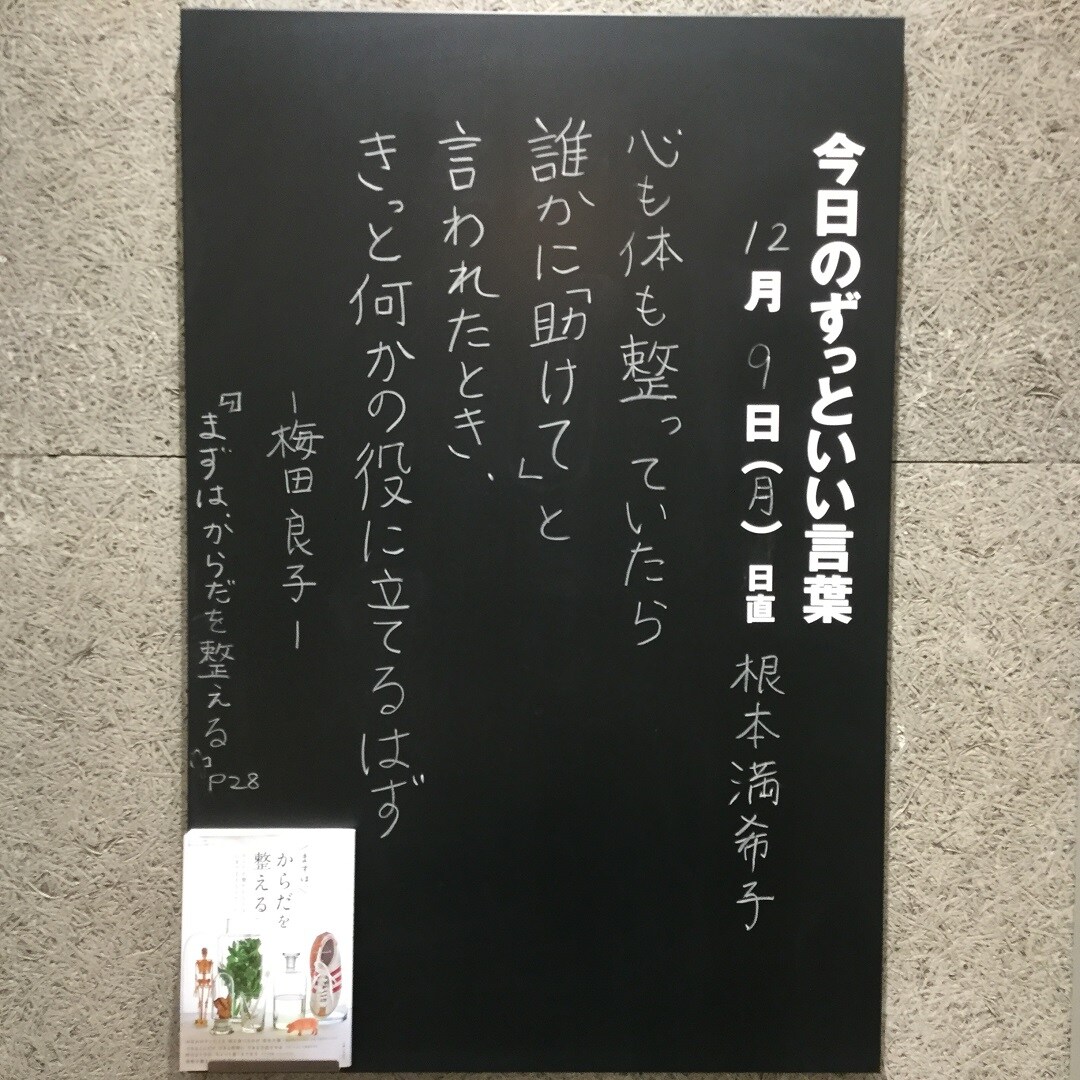 今日のずっといい言葉
12月9日(月) 日直 根本満希子
心も体も整っていたら
誰かに「助けて」と
言われたとき、
きっと何かの役に立てるはず
ー梅田良子ー
『まずはからだを整える』
P28
まずは
からだを
整える